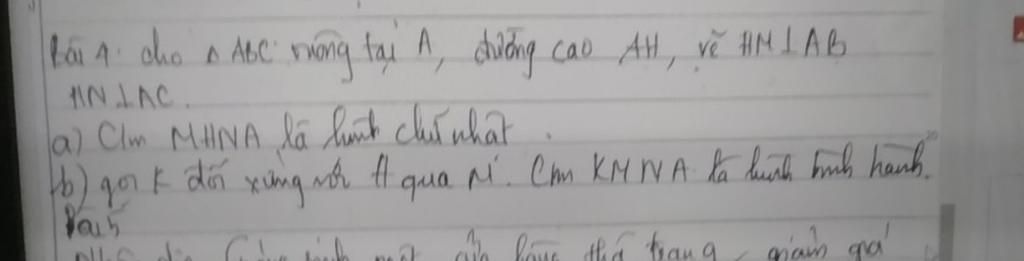 Bài 4. cho △ ABC vuông tại A, đường cao AH, vẽ HM⊥AB
HN⊥AC.
a) Cm MHNA là hình chữ nhật.
b) gọi K đối xứng với H qua M. Cm KMNA là hình bình hành.
Bài 5
thể trang giảm giá